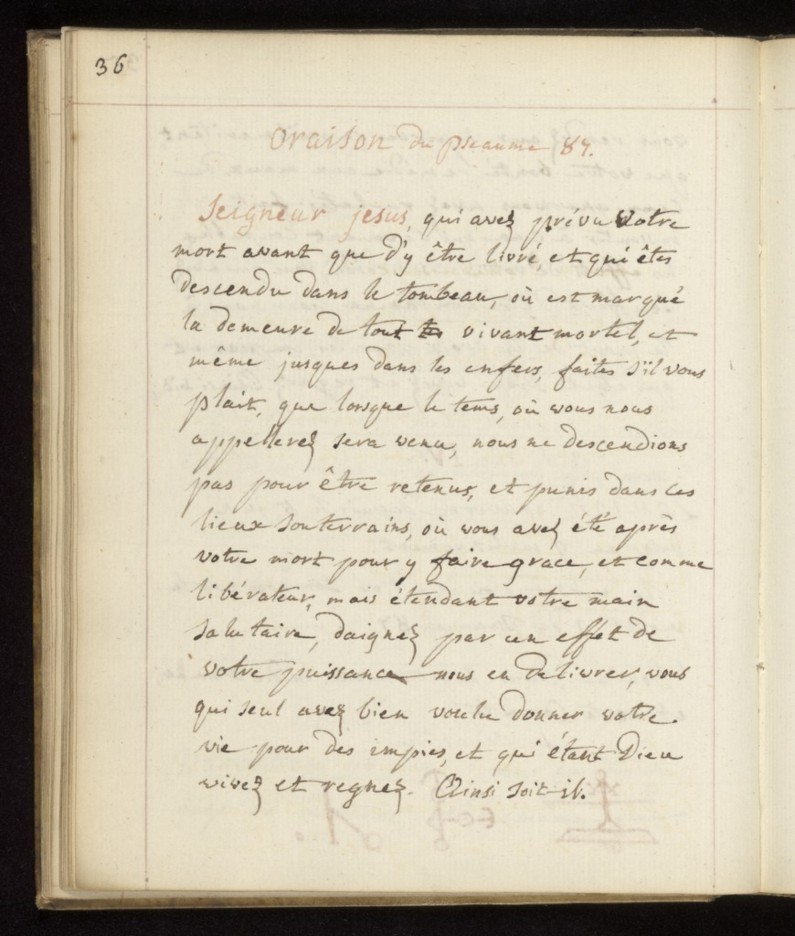 36
Oraison du pseaume 87.
Seigneur jesus, qui avez prévu votre
mort avant que d'y être livré, et qui êtes
descendu dans le tombeau, où est marqué
la demeure de tout vivant mortel, et
même jusques dans les enfers, faites s'il vous
plait, que lorsque le tems, où vous nous
appellerez sera venu, nous ne descendions
pas pour être retenus, et punis dans ces
lieux souterrains, où vous avez été après
votre mort pour y faire grace, et comme
libérateur, mais étendant votre main
salutaire, daignez par un effet de
votre puissance nous en delivrer, vous
qui seul avez bien voulu donner votre
vie pour des impies, et qui étant Dieu
vivez et regnez. Ainsi soit-il.